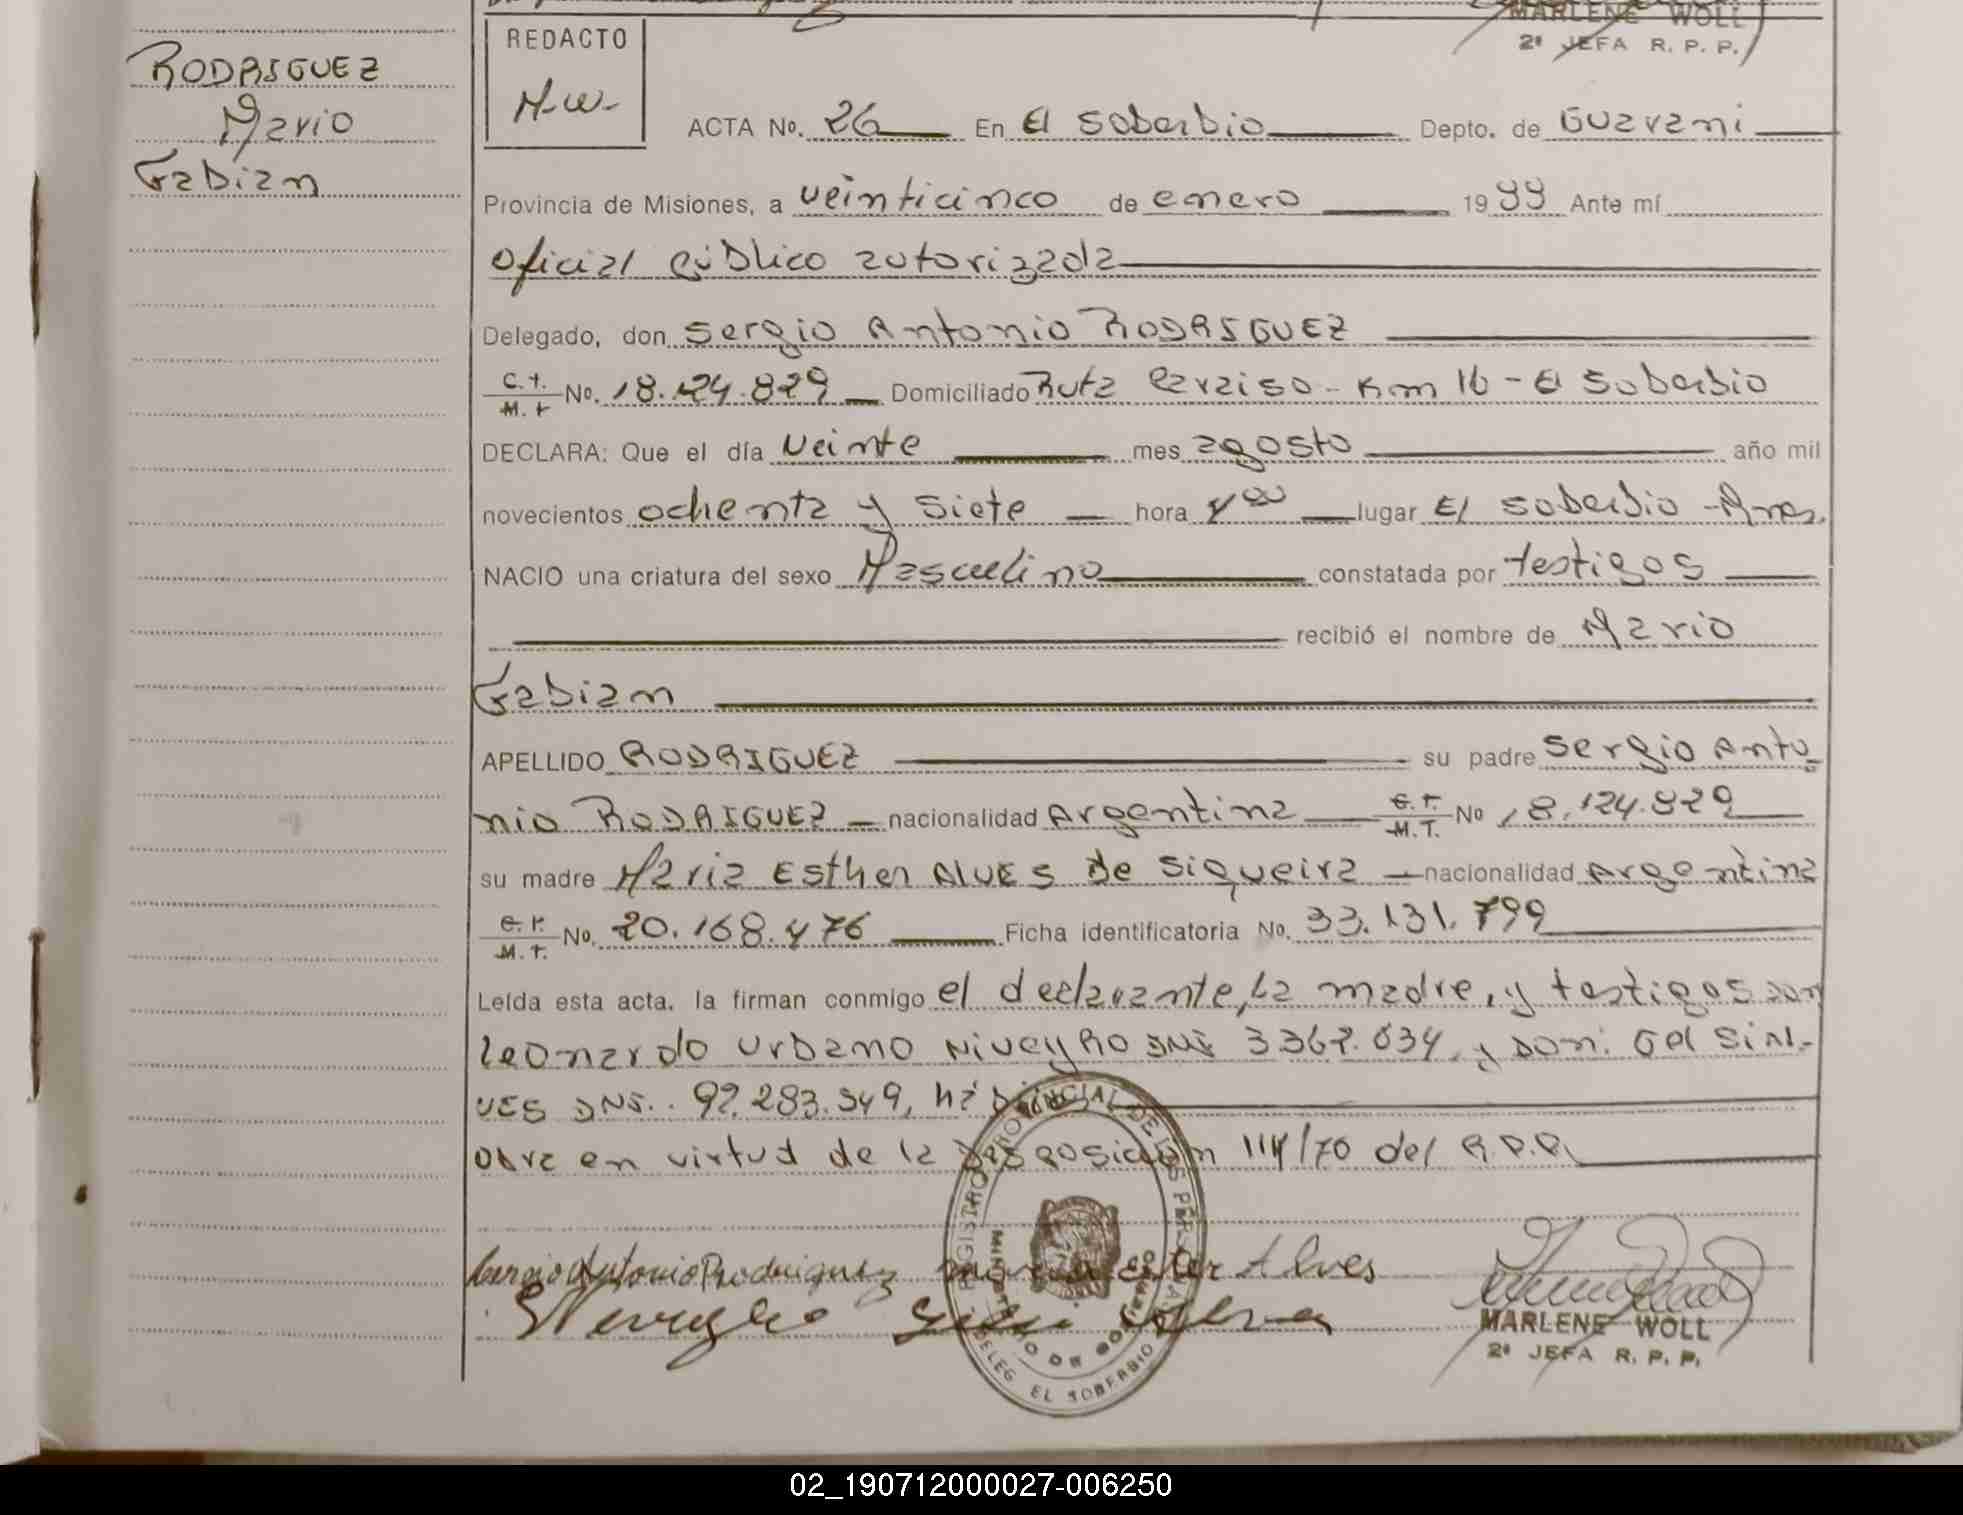 MARLENE WOLL
2ª JEFA R. P. P.
RODRIGUEZ
Mario
Fabian
REDACTO
M-W-
ACTA No. 26 En El Soberbio Depto. de Guarani
Provincia de Misiones, a veinticinco de enero 1999 Ante mí
Oficial Público autorizada
Delegado, don Sergio Antonio RODRIGUEZ
C.I. M.I No. 18.124.829 Domiciliado Ruta Paraiso - Km 16 - El Soberbio
DECLARA: Que el día veinte mes agosto año mil
novecientos ochenta y siete hora 4 00 lugar El Soberbio - Mnes.
NACIO una criatura del sexo Masculino constatada por testigos
recibió el nombre de Mario
Fabian
APELLIDO RODRIGUEZ su padre Sergio Anto-
nio RODRIGUEZ nacionalidad Argentina M.T. No 18.124.829
su madre Maria Esther ALVES de Siqueira nacionalidad Argentina
M.T. No. 20.168.476 Ficha identificatoria No. 33.131.799
Leída esta acta, la firman conmigo el declarante, la madre, y testigos don
Leonardo Urbano NIVEYRO DNI 3.367.634 y Don:
DNI. 92.283.549,
Obra en virtud de la Disposición 114/70 del R.P.P.
Sergio Antonio Rodriguez Maria Ester Alves
REGISTRO PROVINCIAL DE LAS PERSONAS
MINISTERIO DE GOBIERNO
DELEG. EL SOBERBIO
MARLENE WOLL
2ª JEFA R. P. P.
02_190712000027-006250